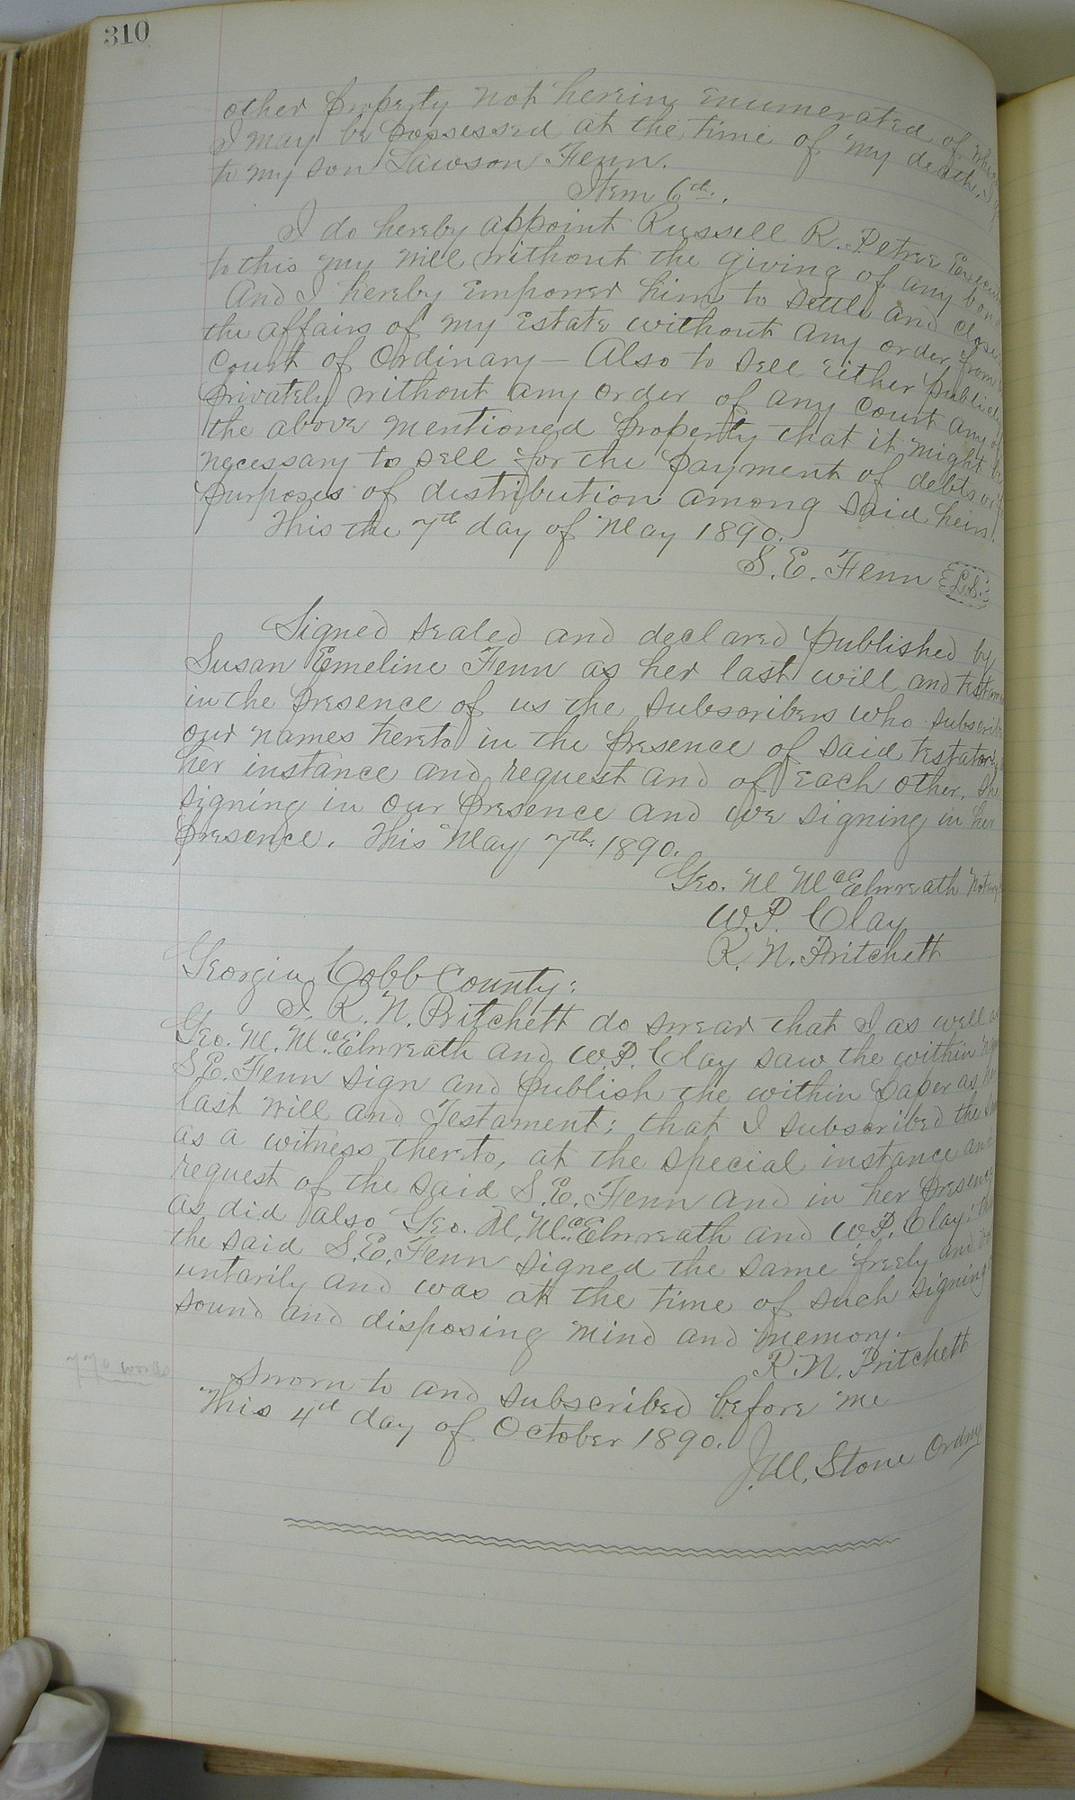 310
other property not herein enumerated of which
I may be possessed at the time of my death, I
to my son Lawson Fenn.
Item 6th.
I do hereby appoint Russell R. Petree
to this my will without the giving of any bond
And I hereby empower him to settle and close
the affairs of my Estate without any order from
Court of Ordinary – Also to sell either publicly
privately without any order of any Court any of
the above mentioned property that it might be
necessary to sell for the payment of debts or
purposes of distribution among said heirs.
This the 7th day of May 1890.
S. E. Fenn L.S.
Signed sealed and declared published by
Susan Emeline Fenn as her last will and
in the presence of us the subscribers who
our names hereto in the presence of said
her instance and request and of each other. She
signing in our presence and we signing in her
presence. This May 7th. 1890.
Geo. M McElwreath
W. P. Clay
R. N. Pritchett
Georgia Cobb County:
I, R. N. Pritchett do swear that I as well as
Geo. M. McElwreath and W. P. Clay saw the within
S. E. Fenn sign and publish the within paper as her
last will and Testament; that I subscribed the
as a witness thereto, at the special instance and
request of the said S. E. Fenn and in her presence
as did also Geo. M. McElwreath and W. P. Clay;
the said S. E. Fenn signed the same freely and
untarily and was at the time of such signing
sound and disposing mind and memory.
R. N. Pritchett
Sworn to and subscribed before me
This 4th day of October 1890.
J. M. Stone Ordny
words